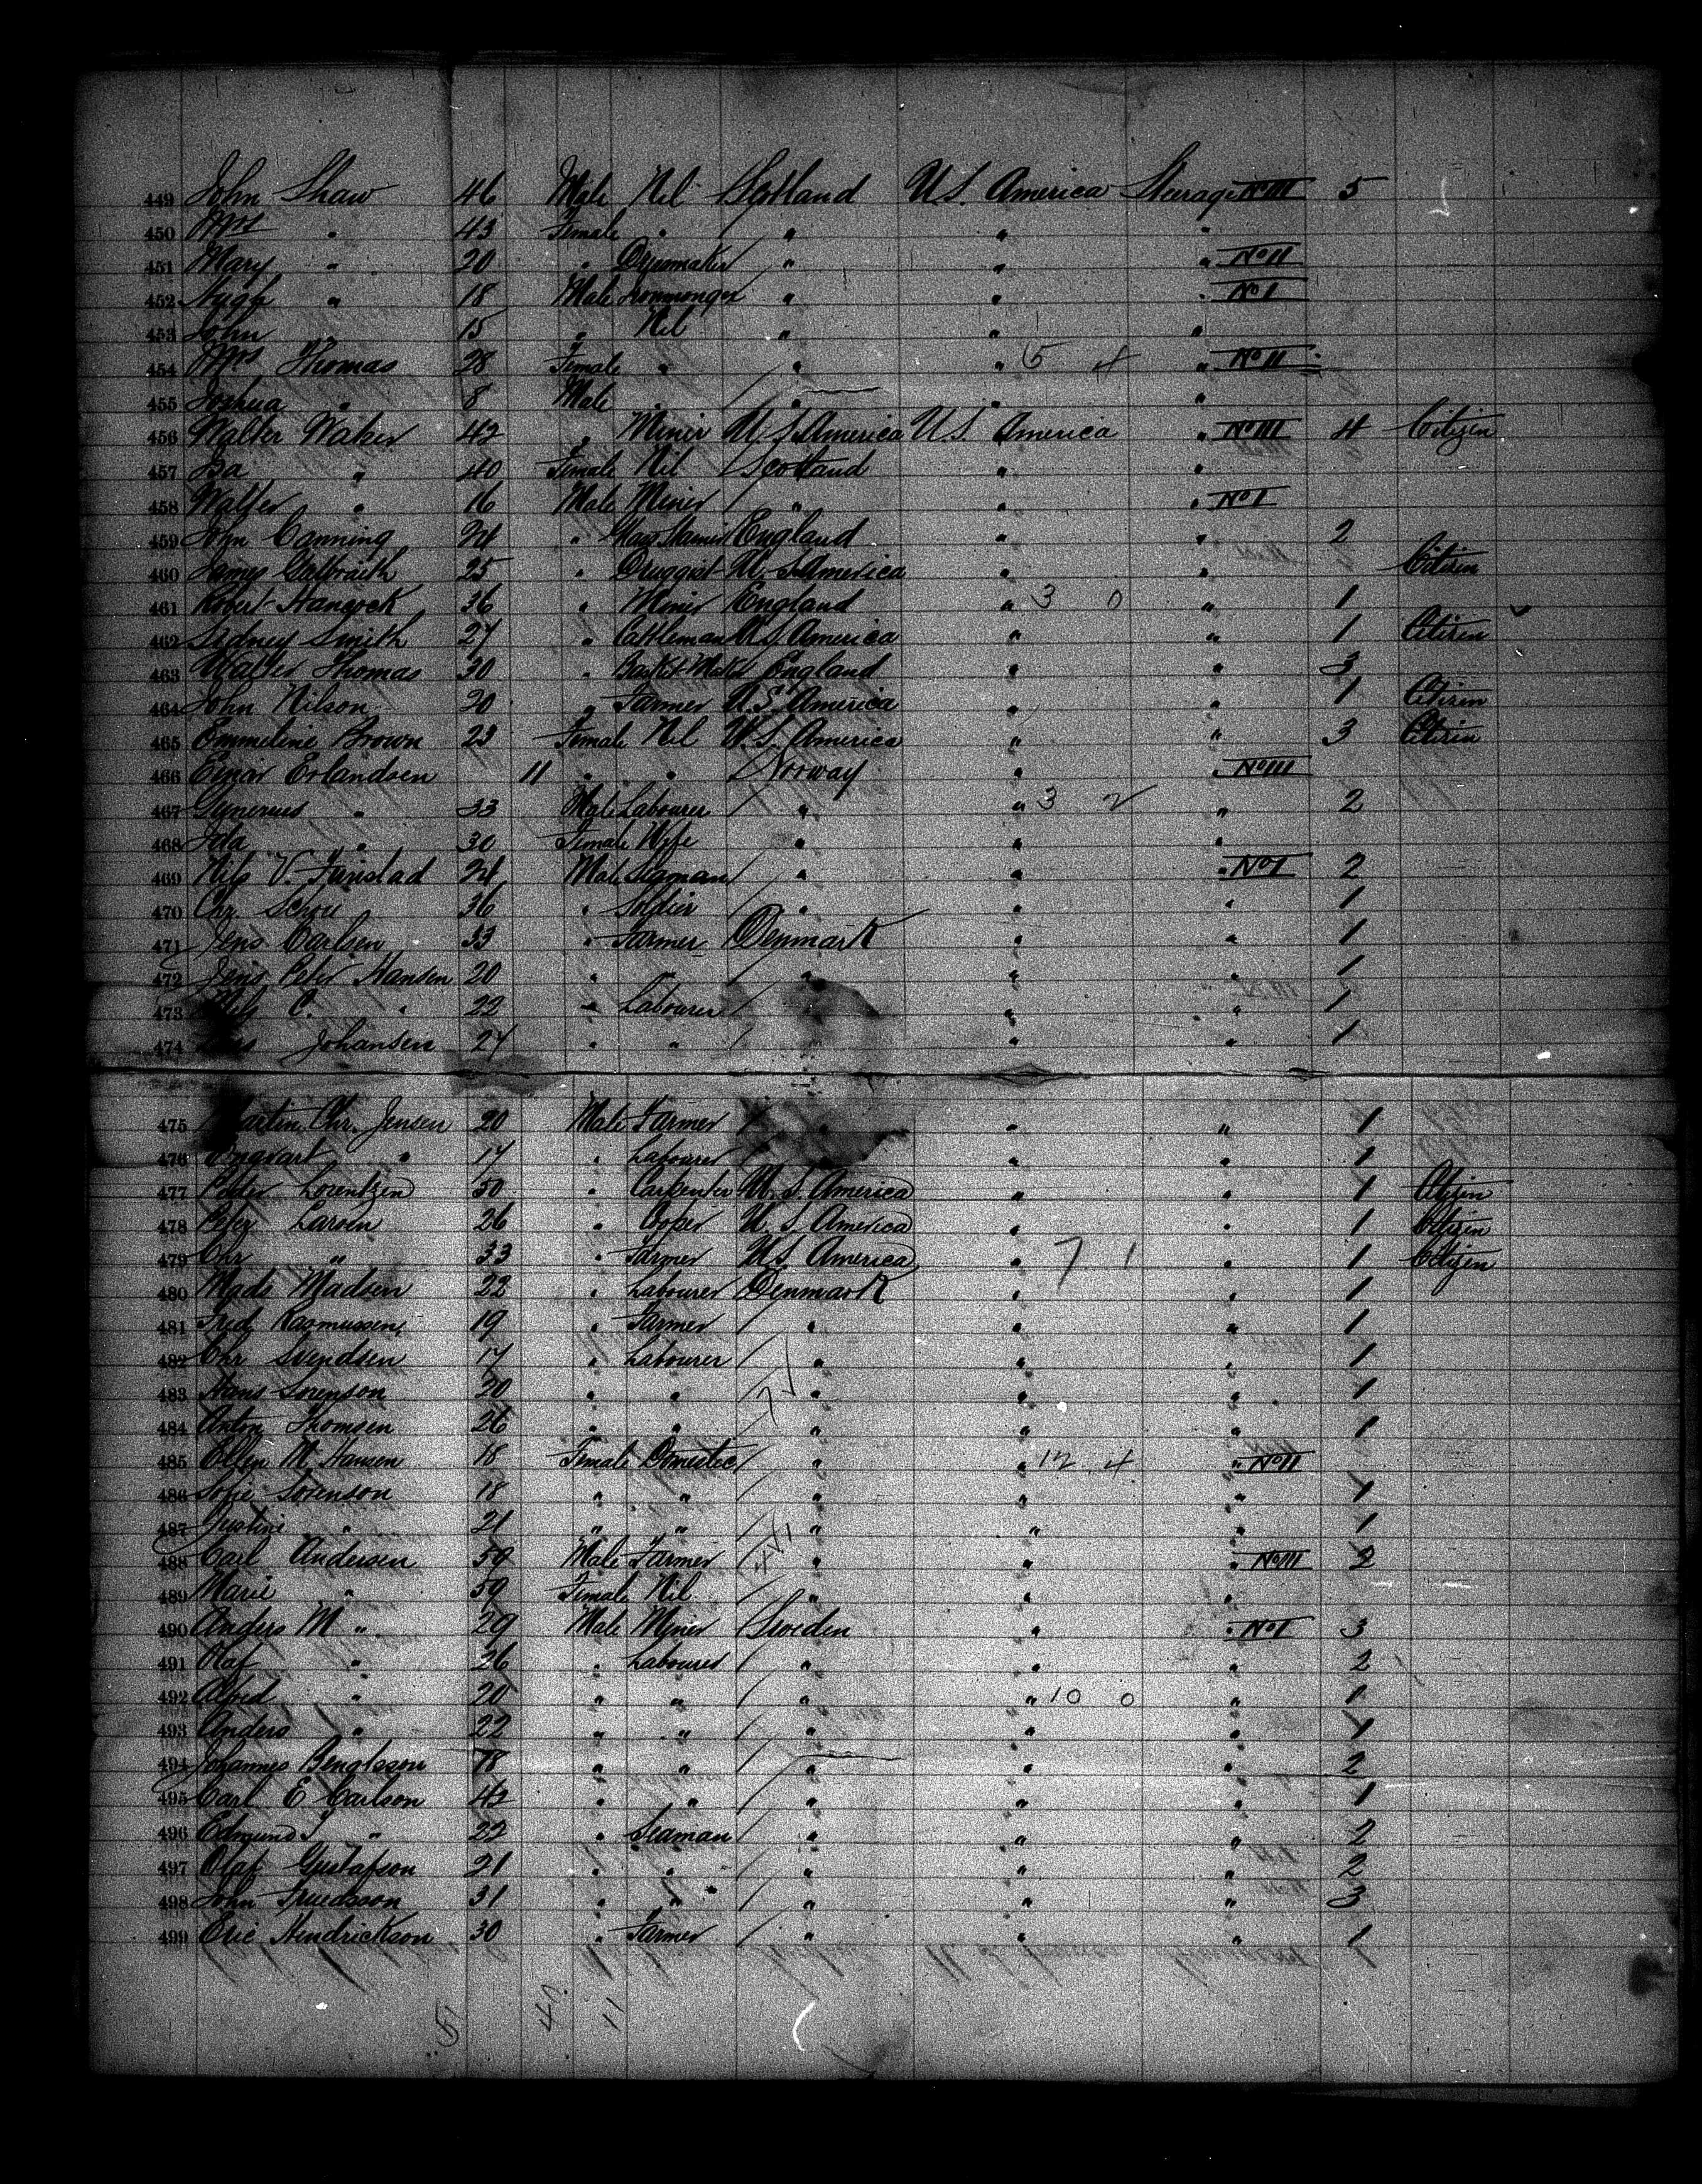 449 John Shaw 46 Male Nil Scotland U.S. America Steerage No III 5
450 Mrs " 43 Female " " " "
451 Mary " 20 " Dressmaker " " " No II
452 Hugh " 18 Male Ironmonger " " " No I
453 John 15 " Nil " " "
454 Mrs Thomas 28 Female " " " 5 4 " No II
455 Joshua " 8 Male " " " "
456 Walter Walker 42 " Miner U.S. America U.S. America " No III 4 Citizen
457 " 40 Female Nil Scotland " "
458 Walter " 16 Male Miner " " " No I
459 John Canning 24 " England " " 2
460 James Galbraith 25 " Druggist U.S. America " Citizen
461 Robert Hancock 36 " Miner England " 3 0 " 1
462 Sidney Smith 27 " Cattleman U.S. America " " 1 Citizen
463 Walter Thomas 30 " Basket Maker England " " 3
464 John Nilson 20 " Farmer U.S. America " " 1 Citizen
465 Emmeline Brown 23 Female Nil U.S. America " " 3 Citizen
466 Einar Erlandsen 11 " " Norway " " No III
467 " 33 Male Labourer " " 3 2 " 2
468 Ida " 30 Female Wife " " "
469 Nils V. 24 Male Seaman " " " No I 2
470 Chr. Schou 36 " Soldier " " " 1
471 Jens Carlsen 33 " Farmer Denmark " " 1
472 Jens Peter Hansen 20 " " " " " 1
473 C. " 22 " Labourer " " 1
474 Johansen 27 " " " " " 1
475 Martin Chr. Jensen 20 Male Farmer " " " 1
476 Ingvart " 17 " Labourer " " 1
477 Peder Lorentzen 50 " Carpenter U.S. America " " 1 Citizen
478 Peter Larsen 26 " Cooper U.S. America " " 1 Citizen
479 Chr " 33 " Farmer U.S. America " 7 1 " 1 Citizen
480 Mads Madsen 22 " Labourer Denmark " " 1
481 Fred Rasmussen 19 " Farmer " " " 1
482 Chr Svendsen 17 " Labourer " " " 1
483 Hans Sorenson 20 " " " " " 1
484 Anton Thomsen 26 " " " " " 1
485 Ellen M Hansen 18 Female Domestic " " 12 4 " No II
486 Sofie Sorenson 18 " " " " " 1
487 Justine " 21 " " " " " 1
488 Carl Andersen 59 Male Farmer " " " No III 2
489 Marie " 59 Female Nil " " "
490 Anders M " 29 Male Miner Sweden " " No I 3
491 Olaf " 26 " Labourer " " " 2
492 Alfred " 20 " " " " 10 0 " 1
493 Anders " 22 " " " " " 1
494 Johannes Bengtsson 18 " " " " " 2
495 Carl E Carlson 42 " " " " " 1
496 Edmund J " 22 " Seaman " " " 2
497 Olaf Gustafson 21 " " " " " 2
498 John 31 " " " " " 3
499 Eric Hendrickson 30 " Farmer " " " 1
5 40 11